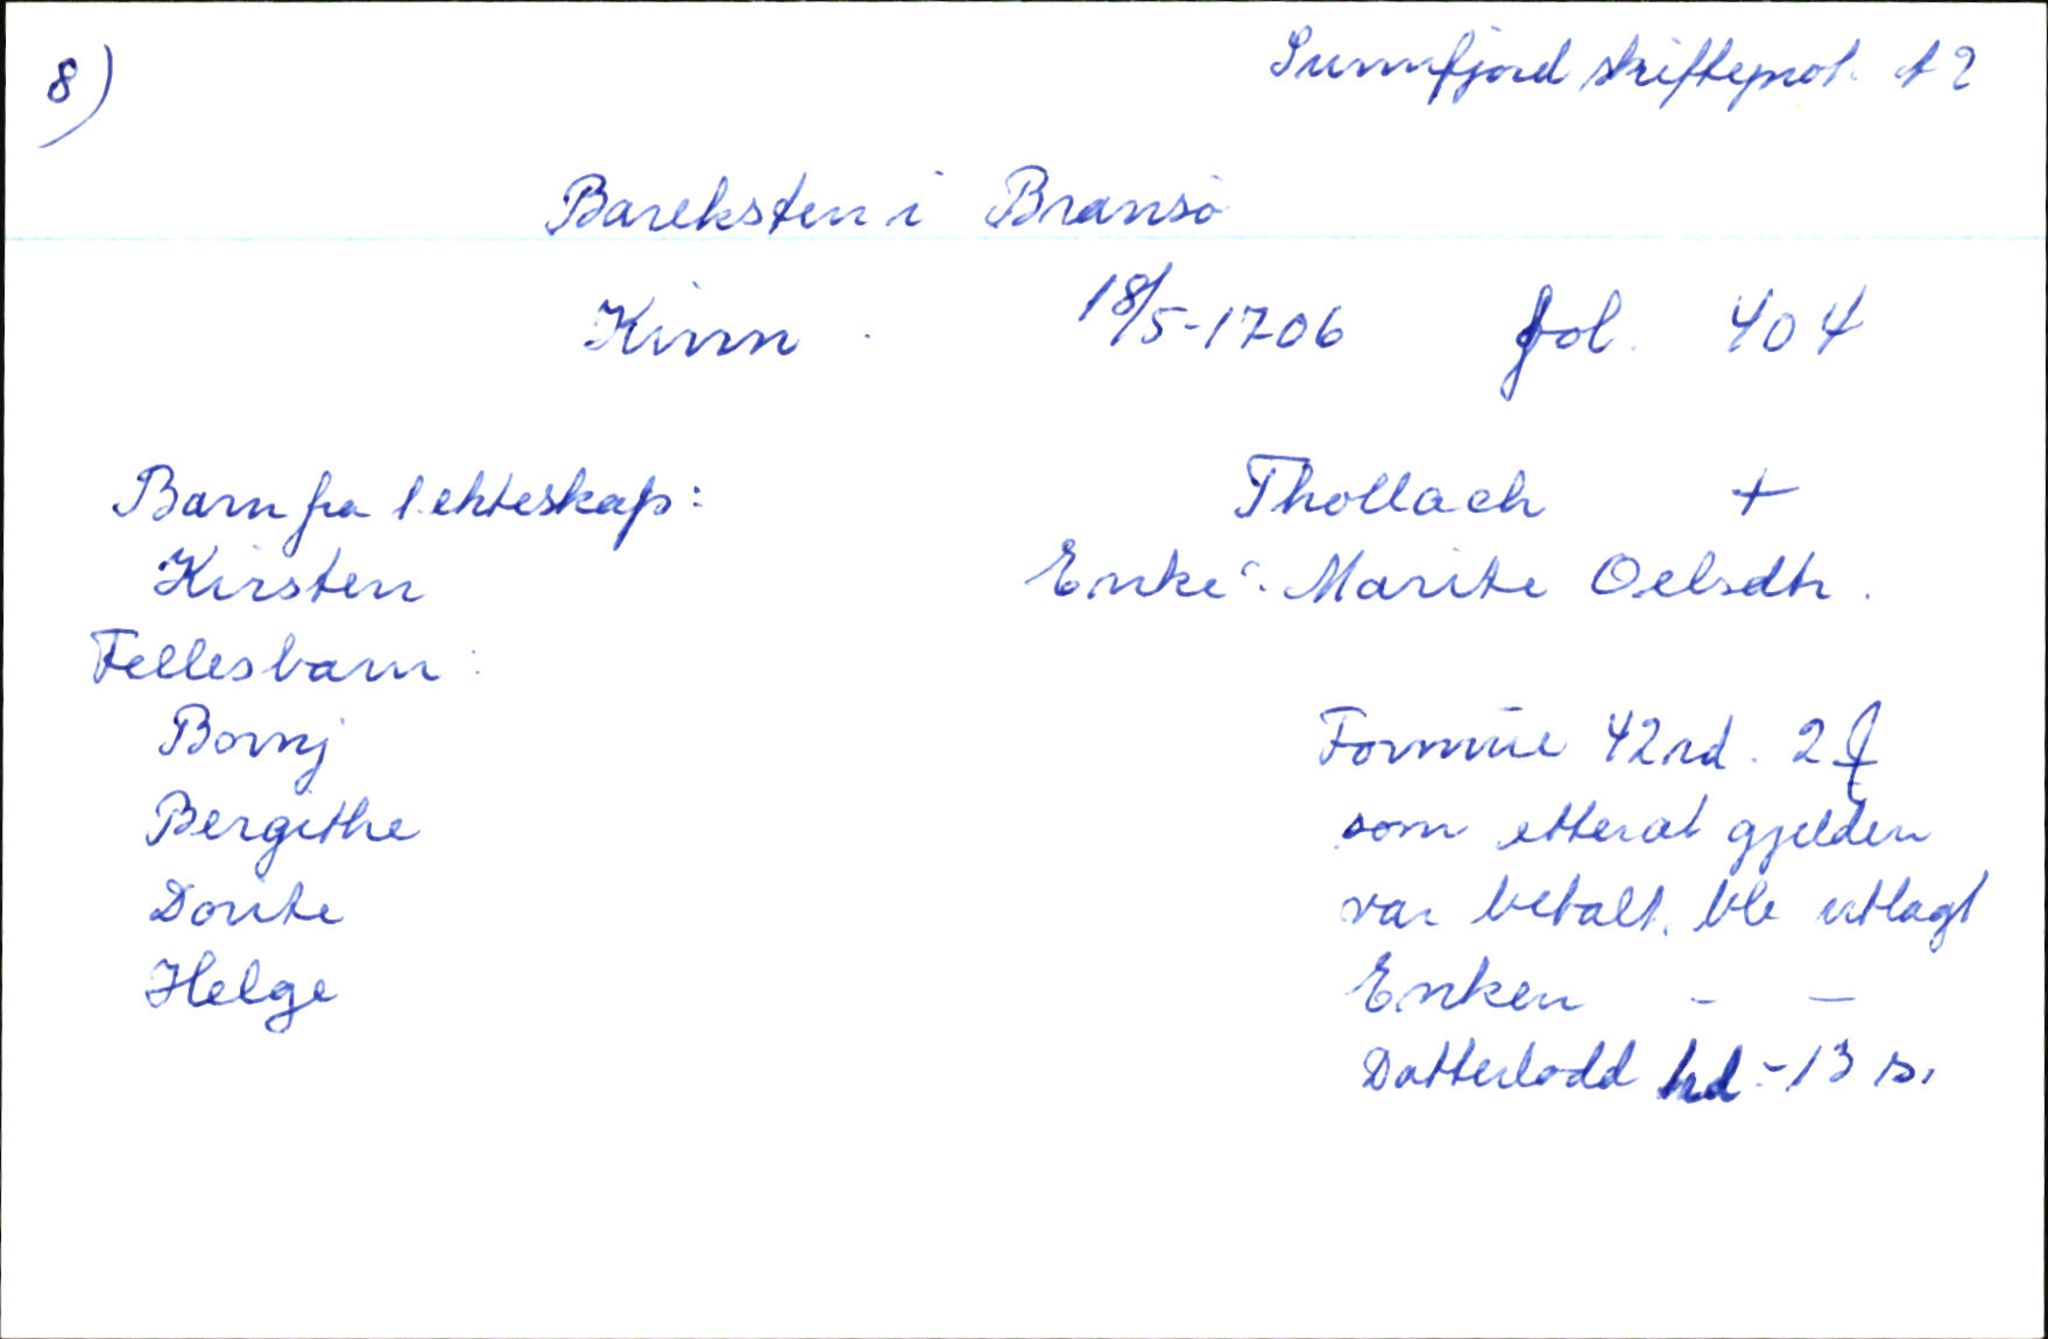 8)
Sunnfjord skifteprot. A 2
Bareksten i Bransö
Kinn. 18/5-1706 fol. 404
Barn fra 1. ekteskap: Thollach +
Kirsten Enke: Marite Oelsdtr.
Fellesbarn:
Bornj Formue 42 rd. 2
Bergithe som etterat gjelden
Dorite var betalt, ble utlagt
Helge Enken - -
Datterlodd rd - 13 s.